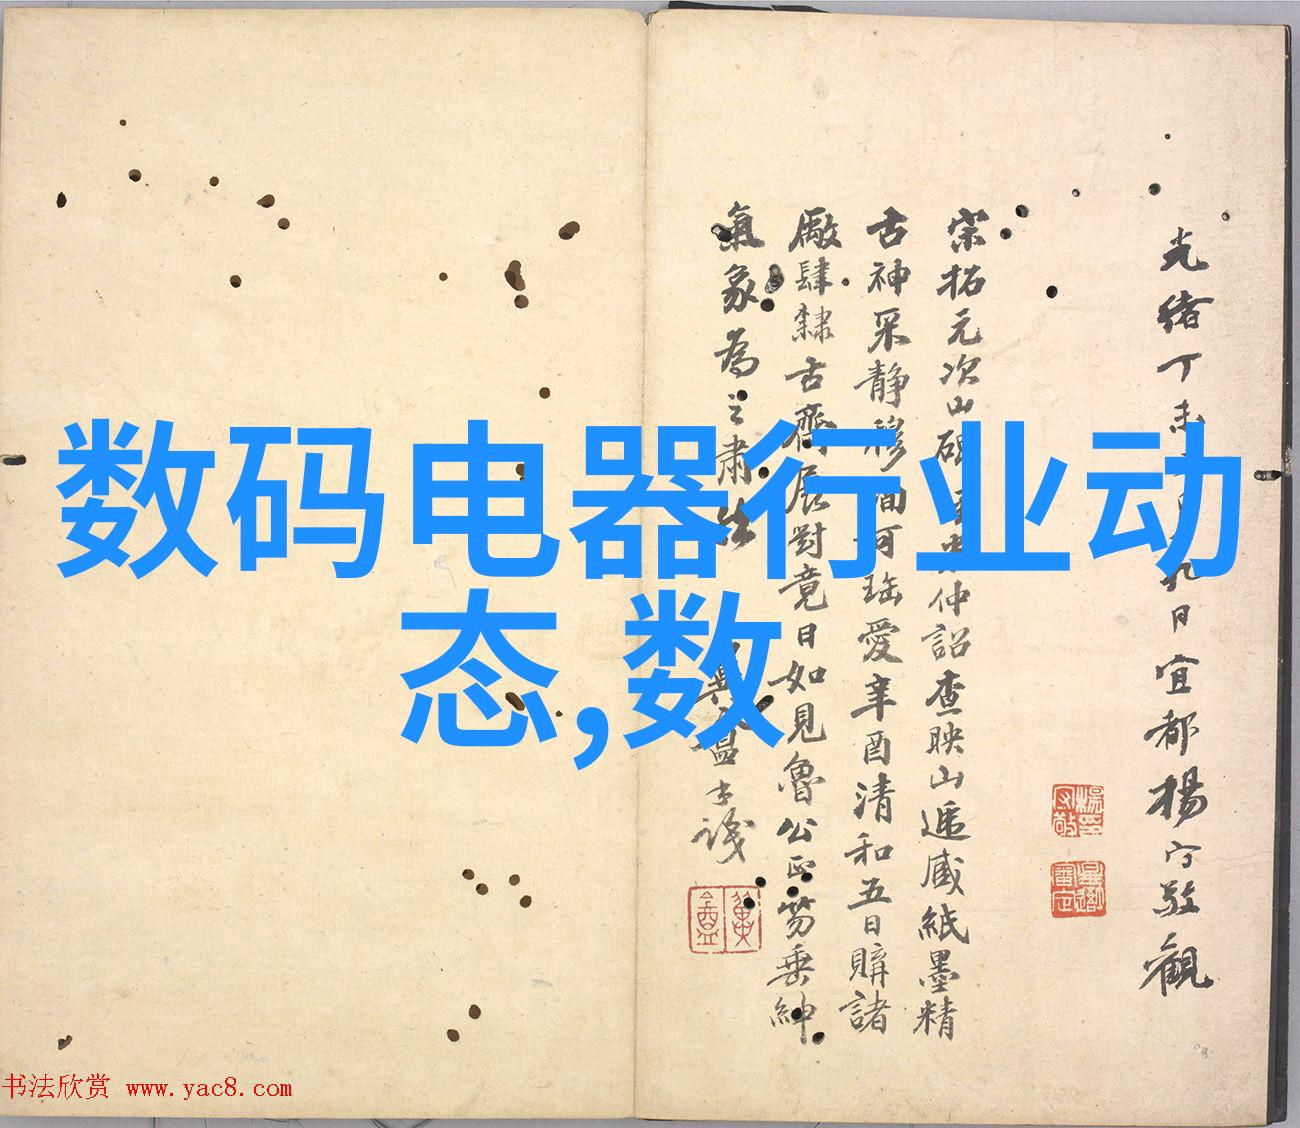 数码电器行业动
态,数
光绪丁未
九日宜都楊守敬觀
宋拓元次山碑
仲詔查映山遞感紙墨精
古神采静穆
可珤愛辛酉清和五日購諸
廠肆隸古齊展對竟日如見魯公正笏垂紳
氣象為之肅然
书法欣赏 www.yac8.com